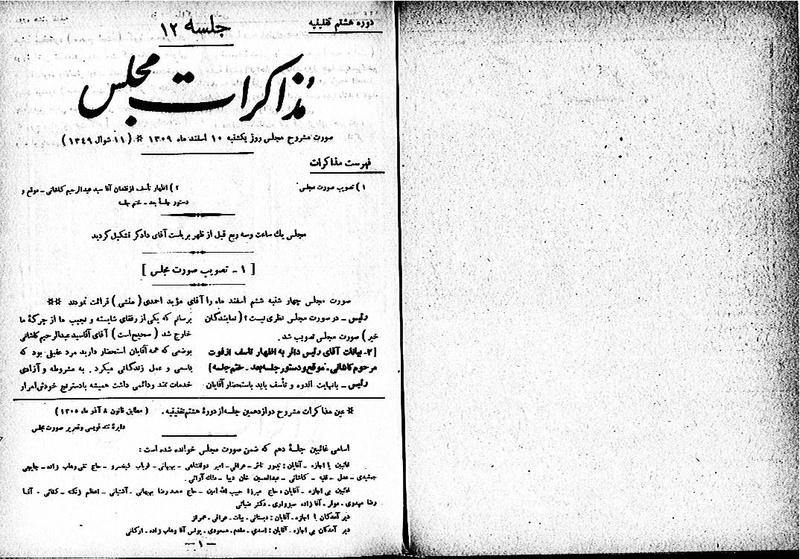 دوره هشتم تقنینیه
جلسه ۱۲
مذاکرات مجلس
صورت مشروح مجلس روز یکشنبه ۱۰ اسفند ماه ۱۳۰۹ * (۱۱ شوال ۱۳۴۹)
فهرست مذاکرات
۱) تصویب صورت مجلس
۲) اظهار تأسف از فقدان آقا سید عبدالرحیم کاشانی ـ موقع و
دستور جلسه بعد ـ ختم جلسه
مجلس یک ساعت و سه ربع قبل از ظهر بریاست آقای دادگر تشکیل گردید
[ ۱ ـ تصویب صورت مجلس ]
صورت مجلس چهار شنبه ششم اسفند ماه را آقای مؤید احمدی (منشی) قرائت نمودند **
رئیس ـ در صورت مجلس نظری نیست؟ (نمایندگان
خیر) صورت مجلس تصویب شد.
[۲ـ بیانات آقای رئیس دائر به اظهار تأسف از فوت
مرحوم کاشانی ـ موقع و دستور جلسه بعد ـ ختم جلسه]
رئیس ـ با نهایت اندوه و تأسف باید باستحضار آقایان
برسانم که یکی از رفقای شایسته و نجیب ما از جرگهٔ ما
خارج شد (صحیح است) آقای آقا سید عبدالرحیم کاشانی
بوضعی که همه آقایان استحضار دارید مرد عفیفی بود که
باسمی و عمل زندگانی میکرد. به مشروطه و آزادی
خدمات نمود و دائمی داشت همیشه با دسترنج خودش امرار
* عین مذاکرات مشروح دوازدهمین جلسه از دورهٔ هشتم تقنینیه. (مطابق قانون ۸ آذر ماه ۱۳۰۵)
دایرهٔ تند نویسی و تحریر صورت مجلس
اسامی غائبین جلسهٔ دهم که ضمن صورت مجلس خوانده شده است:
غائبین با اجازه ـ آقایان: تیمور تاش ـ عراقی ـ امیر دولتشاهی ـ بهبهانی ـ ارباب کیخسرو ـ حاج تقی وهاب زاده ـ چایچی
جمشیدی ـ عدل ـ فتیه ـ کاشانی ـ عبدالحسین خان دیبا ـ ملک آرائی.
غائبین بی اجازه ـ آقایان: حاج میرزا حبیب الله امین ـ حاج محمد رضا بهبهانی ـ آشتیانی ـ اعظم زنگنه ـ کفائی ـ آقا
رضا مهدوی ـ موقر ـ آقا زاده سبزواری ـ دکتر ضیائی
دیر آمدگان با اجازه ـ آقایان: دبستانی ـ بیات ـ عراقی ـ همراز
دیر آمدگان بی اجازه ـ آقایان: اسدی ـ مقدم ـ مسعودی ـ یونس آقا وهاب زاده ـ ارگانی
ـ ۱ ـ